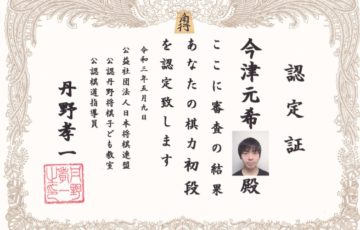 認定証
今津元希殿
ここに審査の結果
あなたの棋力初段
を認定致します
令和三年五月九日
公益社団法人日本将棋連盟
公認丹野将棋子ども教室
公認棋道指導員
丹野孝一